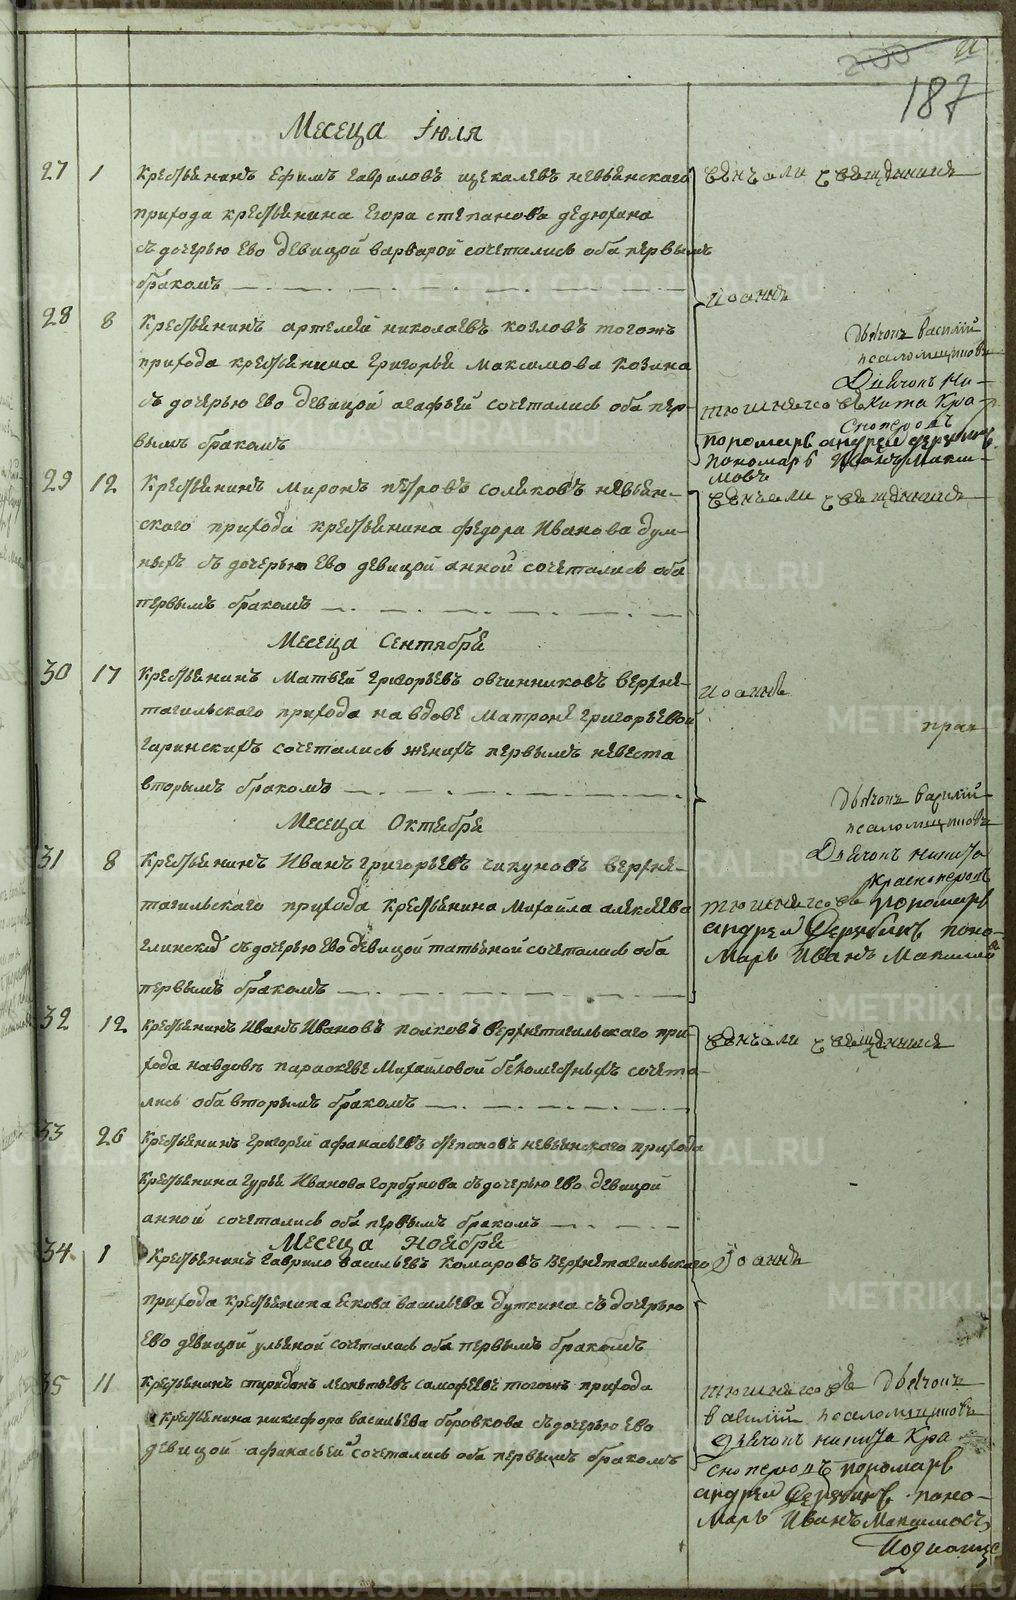 187
Месеца Июля
27 1 Крестьянинъ Ефимъ Гавриловъ щекалевъ невьянского
прихода крестьянина Егора степанова дедюхина
съ дочерью ево девицой варварой сочетались оба первымъ
бракомъ
венчали священникъ
Иоаннъ
28 8 Крестьянинъ артемей николаевъ козловъ тогожъ
прихода крестьянина Григорья Максимова Казина
съ дочерью ево девицой агафьей сочетались оба пер-
вымъ бракомъ
дьячокъ василий
псаломщиковъ
Дьячокъ Ни-
кита Кра-
сноперовъ
пономарь андрей
пономарь Иванъ Макси-
мовъ
29 12 Крестьянинъ Миронъ петровъ невьян-
ского прихода крестьянина Федора Иванова дум-
ныхъ съ дочерью ево девицой анной сочетались оба
первымъ бракомъ
венчали священникъ
Месеца Сентября
30 17 Крестьянинъ Матвей Григорьевъ овчинниковъ верхне-
тагильского прихода на вдове Матроне григорьевой
Гаринскихъ сочетались жених первымъ невеста
вторымъ бракомъ
Иоаннъ
Месеца Октября
31 8 Крестьянинъ Иванъ григорьевъ чикуновъ верхне-
тагильского прихода крестьянина Михаила алексеева
глинских съ дочерью ево девицой татьяной сочетались оба
первымъ бракомъ
дьячокъ василий
псаломщиковъ
Дьячокъ никита
красноперовъ
пономарь
андрей поно-
марь Иванъ Макимов
32 12 Крестьянинъ Иванъ Ивановъ полковъ верхнетагильского при-
хода на вдове параскеве Михайловой сочета-
лись оба вторымъ бракомъ
венчали священникъ
33 26 Крестьянинъ Григорей афанасьевъ степановъ невьянского прихода
крестьянина Гурья Иванова Горбунова съ дочерью ево девицой
анной сочетались оба первымъ бракомъ
Месеца Ноября
34 1 Крестьянинъ Гаврило васильевъ комаровъ Верхнетагильского
прихода крестьянина Якова васильева дуткина съ дочерью
ево девицой ульяной сочетались оба первымъ бракомъ
Иоаннъ
35 11 Крестьянинъ спиридонъ леонтьевъ самофеевъ тогожъ прихода
крестьянина никифора васильева боровкова съ дочерью ево
девицой афанасьей сочетались оба первымъ бракомъ
дьячокъ
василий псаломщиковъ
Дьячокъ никита Кра
сноперовъ пономарь
андрей поно-
марь Иванъ Максимовъ
METRIKI.GASO-URAL.RU